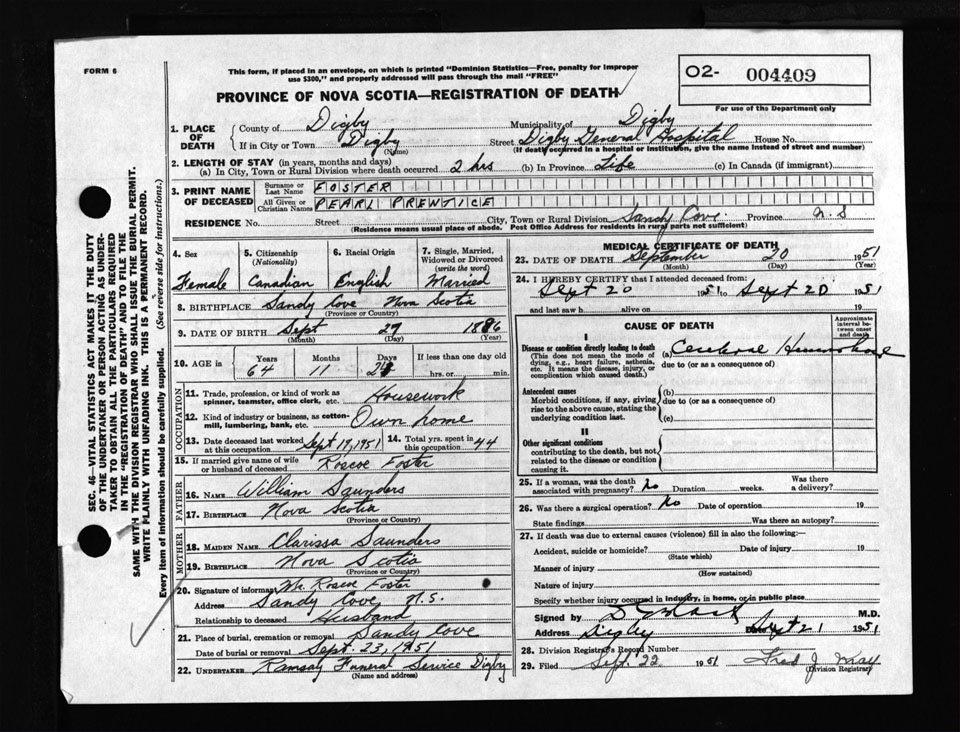 FORM 6
This form, if placed in an envelope, on which is printed "Dominion Statistics—Free, penalty for improper
use $300," and properly addressed will pass through the mail "FREE"
O2- 004409
For use of the Department only
PROVINCE OF NOVA SCOTIA—REGISTRATION OF DEATH
1. PLACE OF DEATH { County of Digby Municipality of Digby
If in City or Town Digby (Name) Street Digby General Hospital House No.
(If death occurred in a hospital or institution, give the name instead of street and number)
2. LENGTH OF STAY (in years, months and days)
(a) In City, Town or Rural Division where death occurred 2 hrs (b) In Province Life (c) In Canada (if immigrant)
3. PRINT NAME OF DECEASED { Surname or Last Name FOSTER
All Given or Christian Names PEARL PRENTICE
RESIDENCE No. Street City, Town or Rural Division Sandy Cove Province N.S
(Residence means usual place of abode. Post Office Address for residents in rural parts not sufficient)
4. Sex Female
5. Citizenship (Nationality) Canadian
6. Racial Origin English
7. Single, Married, Widowed or Divorced (write the word) Married
8. BIRTHPLACE Sandy Cove Nova Scotia
(Province or Country)
9. DATE OF BIRTH Sept 27 1886
(Month) (Day) (Year)
10. AGE in { Years 64 Months 11 Days 24 If less than one day old
hrs. or min.
OCCUPATION
11. Trade, profession, or kind of work as spinner, teamster, office clerk, etc. Housework
12. Kind of industry or business, as cotton-mill, lumbering, bank, etc. Own home
13. Date deceased last worked at this occupation Sept 19, 1951
14. Total yrs. spent in this occupation 44
15. If married give name of wife or husband of deceased Roscoe Foster
FATHER
16. NAME William Saunders
17. BIRTHPLACE Nova Scotia
(Province or Country)
MOTHER
18. MAIDEN NAME Clarissa Saunders
19. BIRTHPLACE Nova Scotia
(Province or Country)
20. Signature of informant Mr. Roscoe Foster
Address Sandy Cove N.S.
Relationship to deceased Husband
21. Place of burial, cremation or removal Sandy Cove
Date of burial or removal Sept. 23, 1951
22. UNDERTAKER Ramsay Funeral Service Digby
(Name and address)
MEDICAL CERTIFICATE OF DEATH
23. DATE OF DEATH September 20 1951
(Month) (Day) (Year)
24. I HEREBY CERTIFY that I attended deceased from:
Sept 20 1951 to Sept 20 1951
and last saw h alive on 19
CAUSE OF DEATH
Approximate interval between onset and death
I
Disease or condition directly leading to death
(This does not mean the mode of dying, e.g., heart failure, asthenia, etc. It means the disease, injury, or complication which caused death.)
(a) Cerebral Hemorrhage
due to (or as a consequence of)
Antecedent causes
Morbid conditions, if any, giving rise to the above cause, stating the underlying condition last.
(b)
due to (or as a consequence of)
(c)
II
Other significant conditions
contributing to the death, but not related to the disease or condition causing it.
25. If a woman, was the death associated with pregnancy? No Duration weeks. Was there a delivery?
26. Was there a surgical operation? No Date of operation 19
State findings Was there an autopsy?
27. If death was due to external causes (violence) fill in also the following:—
Accident, suicide or homicide? Date of injury 19
(State which)
Manner of injury
(How sustained)
Nature of injury
Specify whether injury occurred in industry, in home, or in public place
Signed by M.D.
Address Digby Date Sept 21 1951
28. Division Registrar's Record Number
29. Filed Sept. 22 1951 Fred J.
(Division Registrar)
SEC. 46—VITAL STATISTICS ACT MAKES IT THE DUTY
OF THE UNDERTAKER OR PERSON ACTING AS UNDER-
TAKER TO OBTAIN ALL THE PARTICULARS REQUIRED
IN THE "REGISTRATION OF DEATH" AND TO FILE THE
SAME WITH THE DIVISION REGISTRAR WHO SHALL ISSUE THE BURIAL PERMIT.
WRITE PLAINLY WITH UNFADING INK. THIS IS A PERMANENT RECORD.
Every item of information should be carefully supplied. (See reverse side for instructions.)